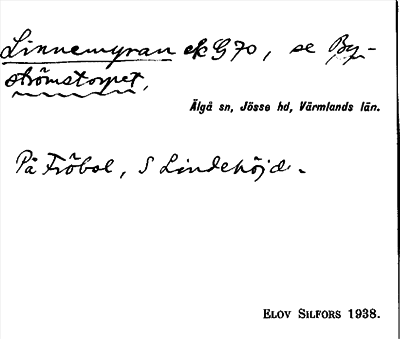 Linnemyran ek G 70, se By-
strömstorpet,
Älgå sn, Jösse hd, Värmlands län.
På Fröbol, S Lindehöjd.
ELOV SILFORS 1938.